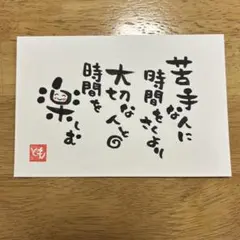 苦手な人に
時間をさくより
大切な人との
時間を
楽しむ
とも